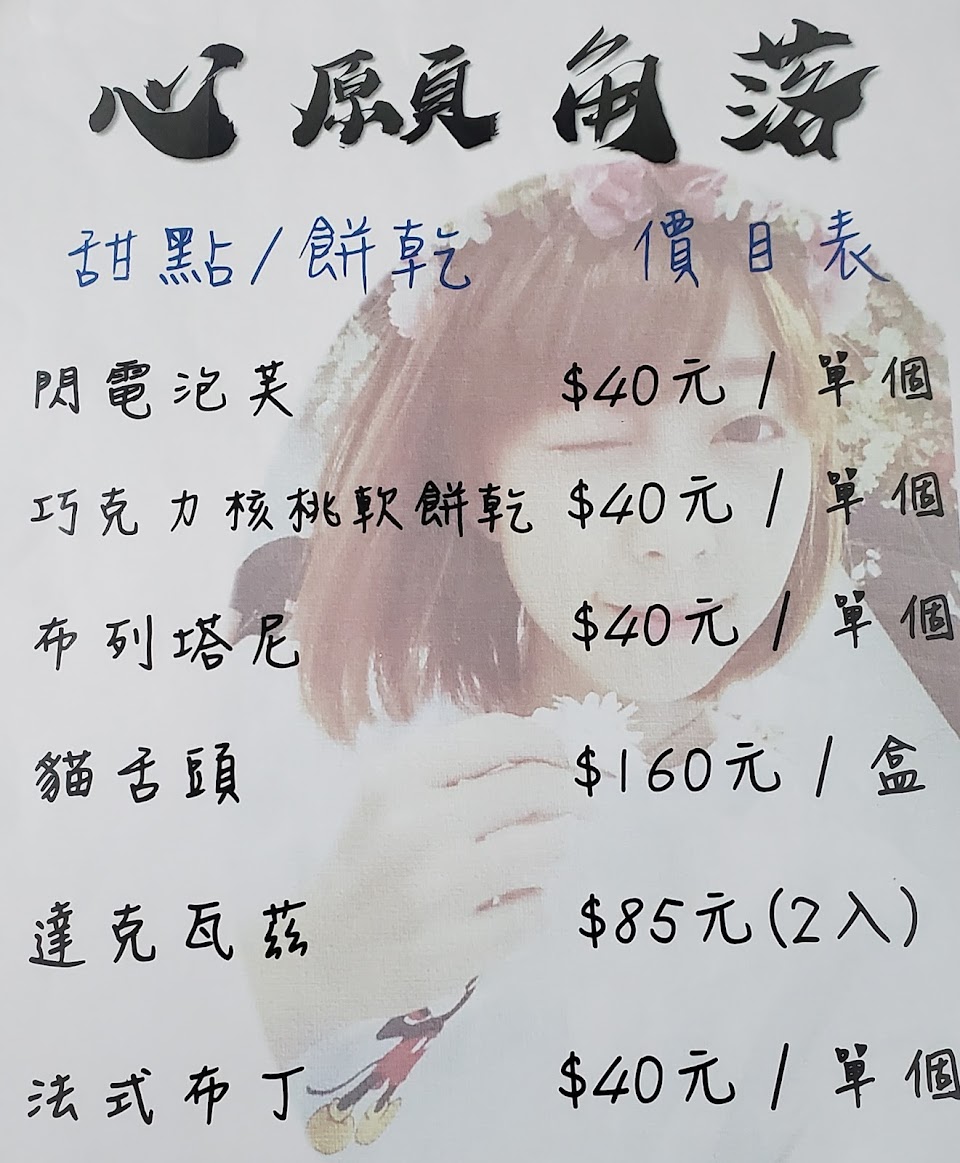 心願角落
甜點/餅乾 價目表
閃電泡芙 $40元/單個
巧克力核桃軟餅乾 $40元/單個
布列塔尼 $40元/單個
貓舌頭 $160元/盒
達克瓦茲 $85元(2入)
法式布丁 $40元/單個